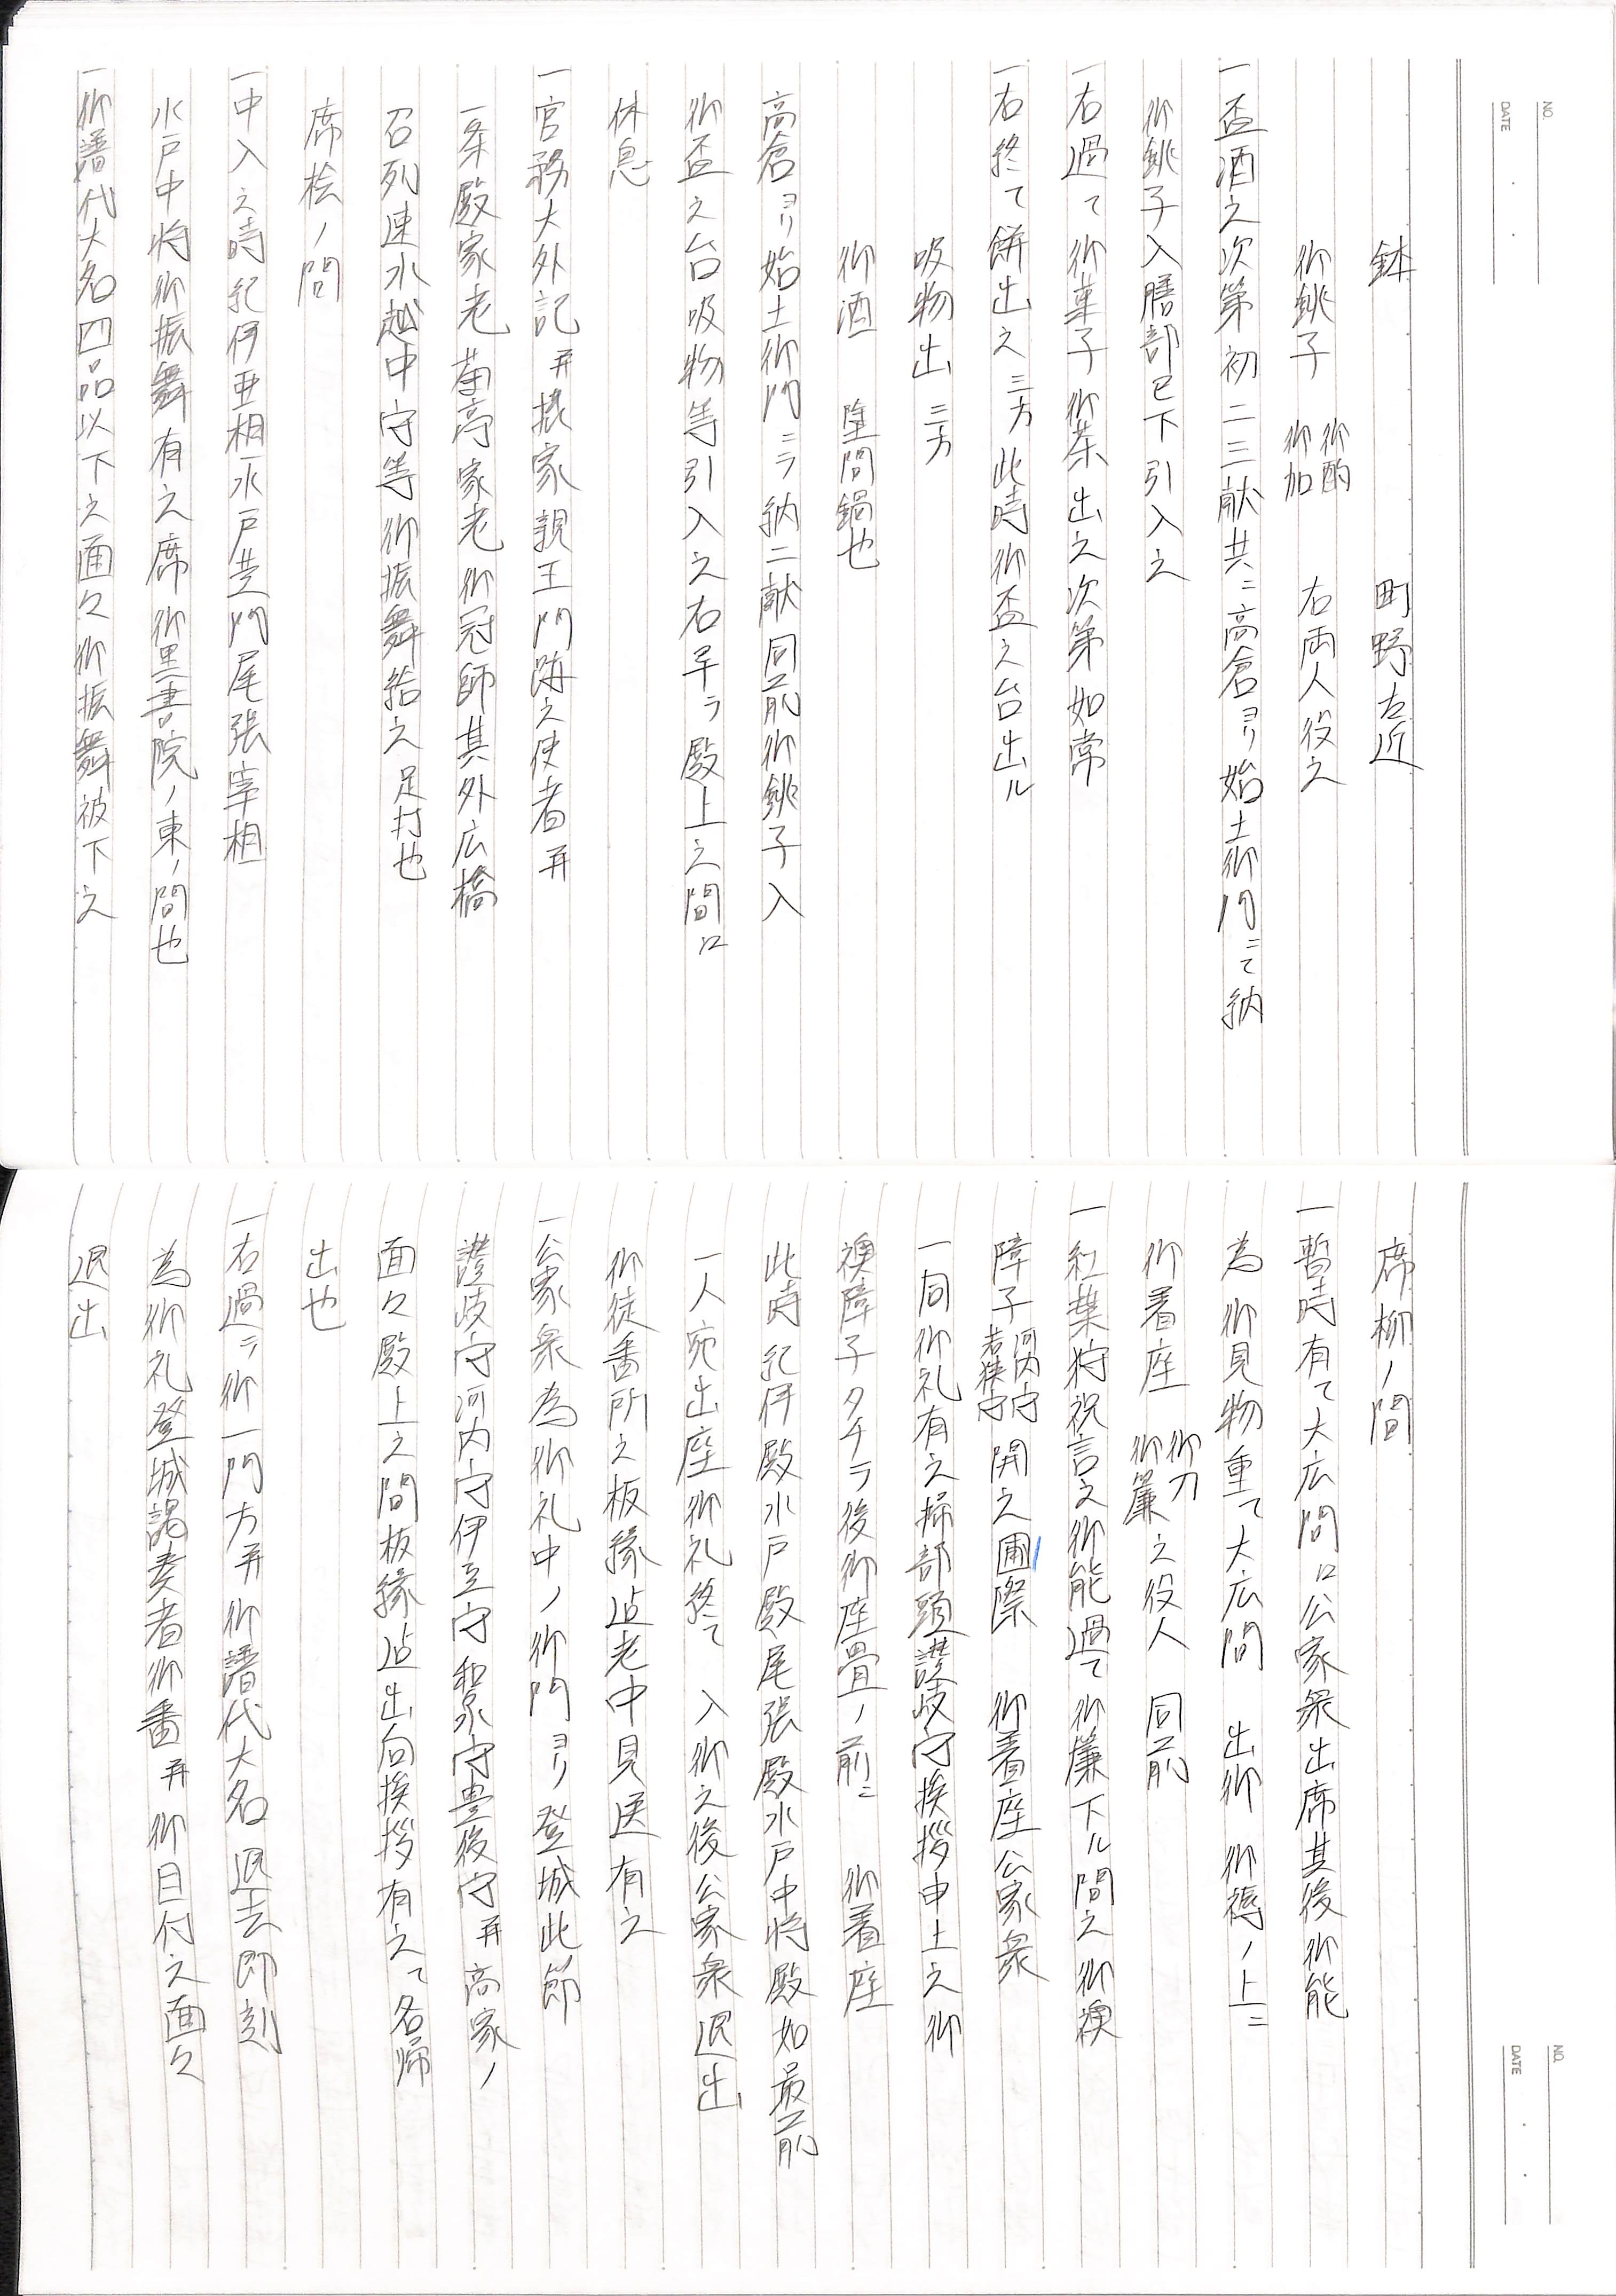 NO.
DATE
鉢 町野左近
御銚子 御酌 御加 右両人役之
一盃酒之次第初二三献共ニ高倉ヨリ始土御門ニて納
御銚子入膳部已下引入之
一右過て御菓子御茶出之次第如常
一右終て餅出之三方此時御盃之台出ル
吸物出 三方
御酒 陸間鍋也
高倉ヨリ始土御門ニテ納二献同前御銚子入
御盃之台吸物等引入之右早テ殿上之間江
休息
一官務大外記并摂家親王門跡之使者并
一条殿家老菊亭家老御冠師其外広橋
召列速水越中守等御振舞給之足打也
席桧ノ間
一中入之時紀伊亜相水戸黄門尾張宰相
水戸中将御振舞有之席御黒書院ノ東ノ間也
一御譜代大名四品以下之面々御振舞被下之
NO.
DATE
席柳ノ間
一暫時有て大広間江公家衆出席其後御能
為御見物重て大広間 出御 御褥ノ上ニ
御着座 御刀 御簾之役人 同前
一紅葉狩祝言之御能過て御簾下ル間之御襖
障子 河内守 若狭守 開之圃際 御着座公家衆
一同御礼有之掃部頭讃岐守挨拶申上之御
襖障子タチテ後御座畳ノ前ニ 御着座
此時紀伊殿水戸殿尾張殿水戸中将殿如最前
一人宛出座御礼終て 入御之後公家衆退出
御徒番所之板縁迠老中見送有之
一公家衆為御礼中ノ御門ヨリ登城此節
讃岐守河内守伊豆守和泉守豊後守并高家ノ
面々殿上之間板縁迠出向挨拶有之て各帰
出也
一右過テ御一門方并御譜代大名退去即刻
為御礼登城謁奏者御番并御目付之面々
退出